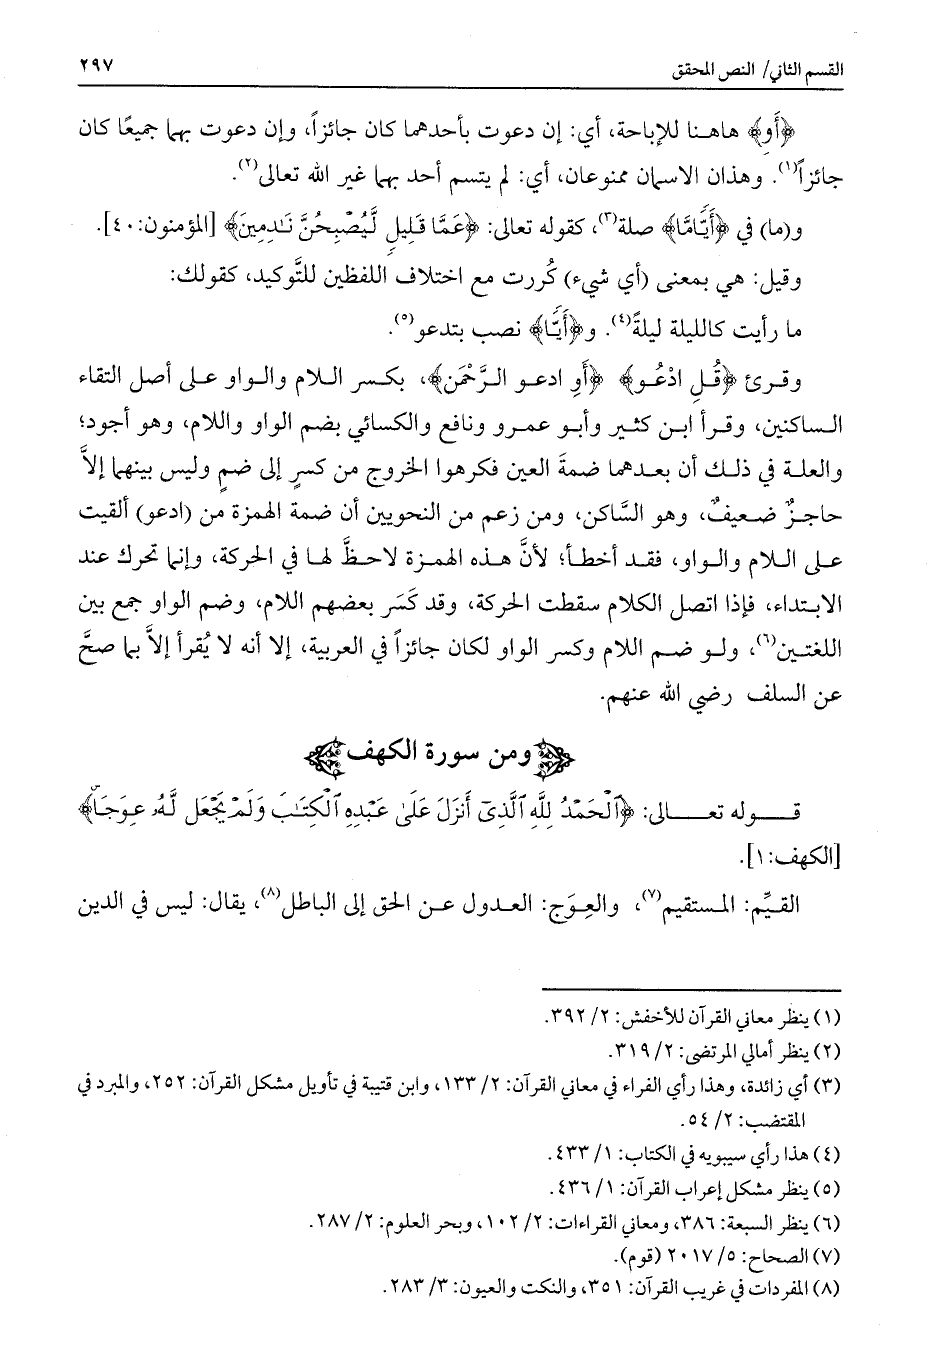 القسم الثاني/ النص المحقق ٢٩٧
﴿أَوِ﴾ هاهنا للإباحة، أي: إن دعوت بأحدهما كان جائزاً، وإن دعوت بهما جميعًا كان
جائزاً(١). وهذان الاسمان ممنوعان، أي: لم يتسم أحد بهما غير الله تعالى(٢).
و(ما) في ﴿أَيًّامَّا﴾ صلة(٣)، كقوله تعالى: ﴿عَمَّا قَلِيلٍ لَّيُصْبِحُنَّ نَـٰدِمِينَ﴾ [المؤمنون:٤٠].
وقيل: هي بمعنى (أي شيء) كُررت مع اختلاف اللفظين للتَّوكيد، كقولك:
ما رأيت كالليلة ليلةً(٤). و﴿أَيًّا﴾ نصب بتدعو(٥).
وقرئ ﴿قُلِ ادْعُو﴾ ﴿أَوِ ادعو الرَّحْمَن﴾، بكسر اللام والواو على أصل التقاء
الساكنين، وقرأ ابن كثير وأبو عمرو ونافع والكسائي بضم الواو واللام، وهو أجود؛
والعلة في ذلك أن بعدهما ضمةَ العين فكرهوا الخروج من كسرٍ إلى ضمٍ وليس بينهما إلاَّ
حاجزٌ ضعيفٌ، وهو السَّاكن، ومن زعم من النحويين أن ضمة الهمزة من (ادعو) ألقيت
على اللام والواو، فقد أخطأ؛ لأنَّ هذه الهمزة لاحظَّ لها في الحركة، وإنما تحرك عند
الابتداء، فإذا اتصل الكلام سقطت الحركة، وقد كَسَر بعضهم اللام، وضم الواو جمع بين
اللغتين(٦)، ولو ضم اللام وكسر الواو لكان جائزاً في العربية، إلا أنه لا يُقرأ إلاَّ بما صحَّ
عن السلف رضي الله عنهم.
﴿ومن سورة الكهف﴾
قوله تعالى: ﴿ٱلْحَمْدُ لِلَّهِ ٱلَّذِىٓ أَنزَلَ عَلَىٰ عَبْدِهِ ٱلْكِتَـٰبَ وَلَمْ يَجْعَل لَّهُۥ عِوَجَاۜ﴾
[الكهف:١].
القيِّم: المستقيم(٧)، والعِوَج: العدول عن الحق إلى الباطل(٨)، يقال: ليس في الدين
(١) ينظر معاني القرآن للأخفش: ٢/ ٣٩٢.
(٢) ينظر أمالي المرتضى: ٢/ ٣١٩.
(٣) أي زائدة، وهذا رأي الفراء في معاني القرآن: ٢/ ١٣٣، وابن قتيبة في تأويل مشكل القرآن: ٢٥٢، والمبرد في
المقتضب: ٢/ ٥٤.
(٤) هذا رأي سيبويه في الكتاب: ١/ ٤٣٣.
(٥) ينظر مشكل إعراب القرآن: ١/ ٤٣٦.
(٦) ينظر السبعة: ٣٨٦، ومعاني القراءات: ٢/ ١٠٢، وبحر العلوم: ٢/ ٢٨٧.
(٧) الصحاح: ٥/ ٢٠١٧ (قوم).
(٨) المفردات في غريب القرآن: ٣٥١، والنكت والعيون: ٣/ ٢٨٣.